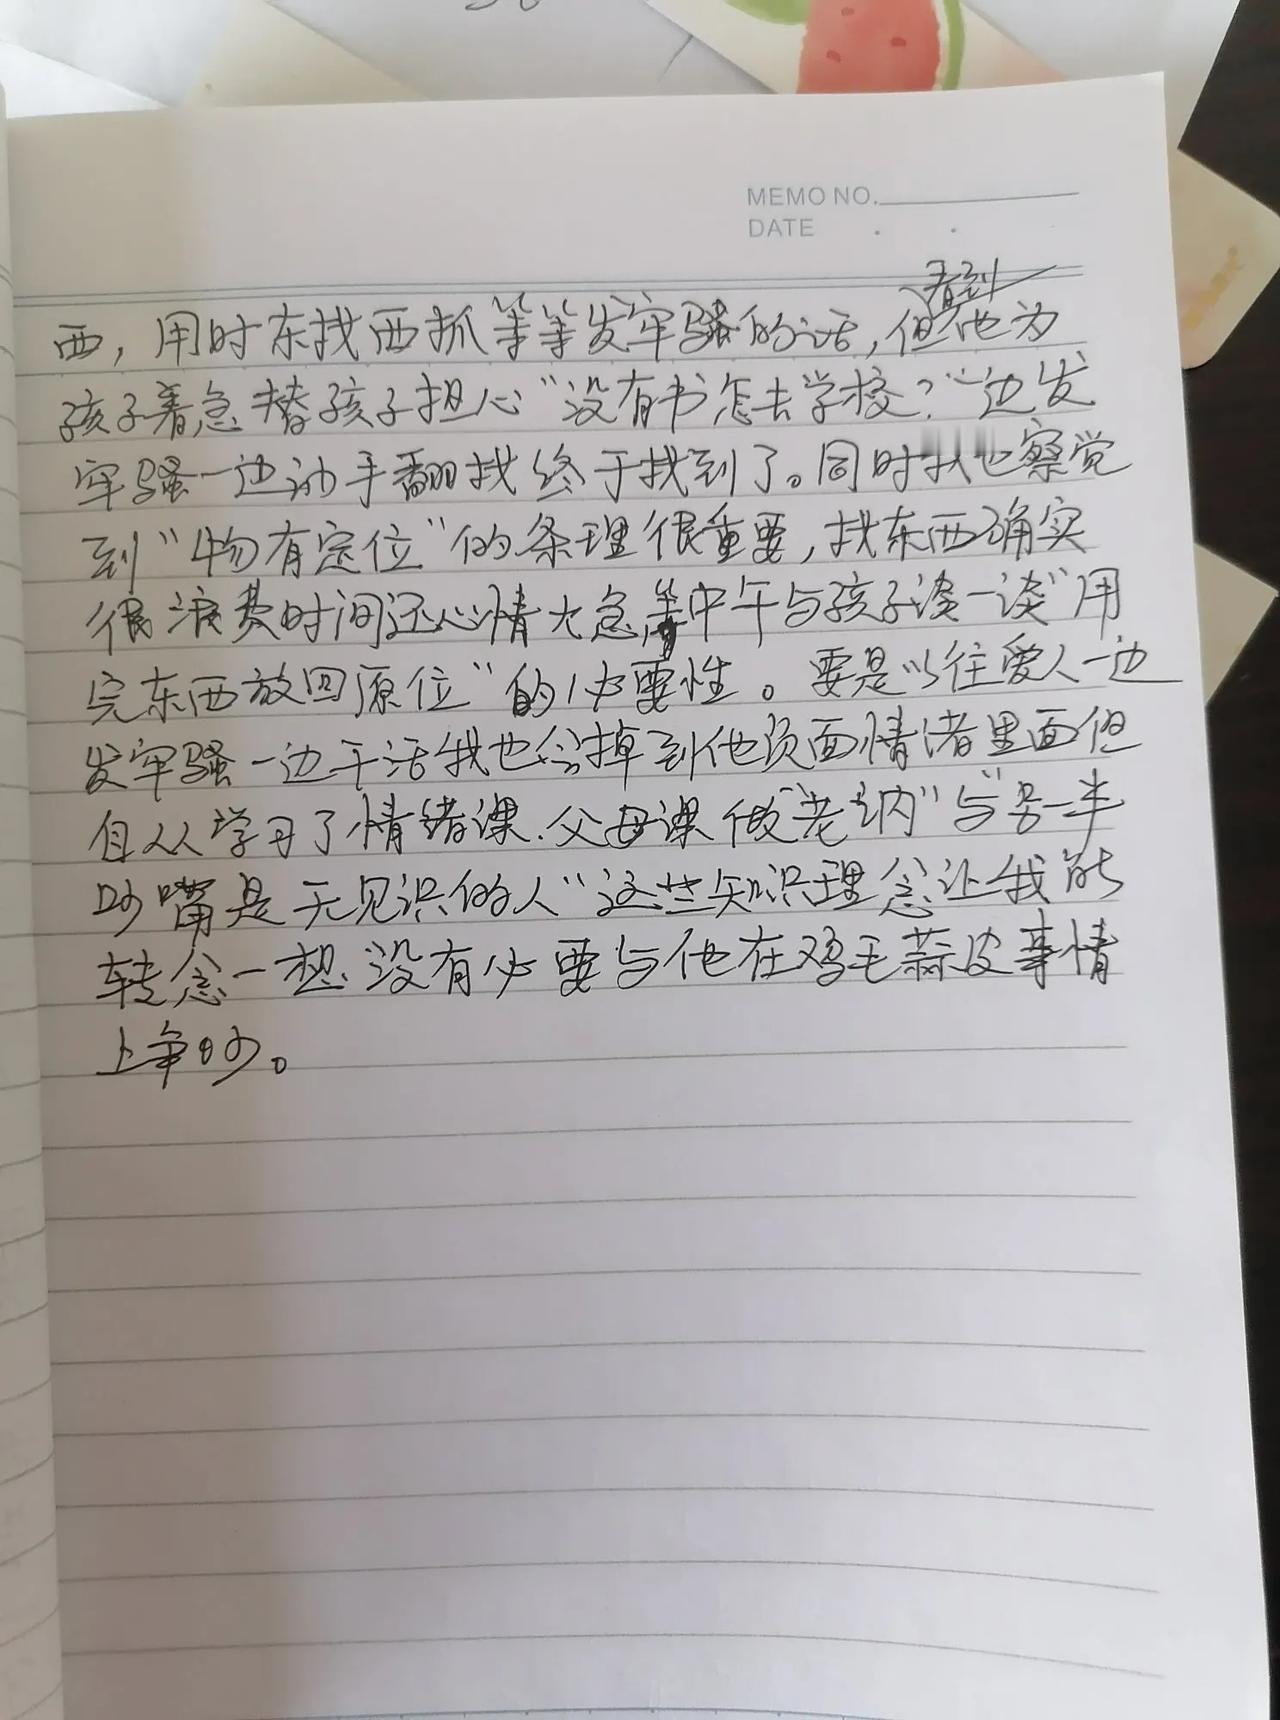 MEMO NO.
DATE
看到
西，用时东找西抓等等发牢骚的话，但他为
孩子着急替孩子担心“没有书怎去学校？”一边发
牢骚一边动手翻找终于找到了。同时我也察觉
到“物有定位”的条理很重要，找东西确实
很浪费时间还心情大急，等中午与孩子谈一谈“用
完东西放回原位”的必要性。要是以往爱人一边
发牢骚一边干活我也会掉到他负面情绪里面但
自从学习了情绪课.父母课做“老衲”与“另一半
吵嘴是无见识的人”这些知识理念让我能
转念一想.没有必要与他在鸡毛蒜皮事情
上争吵。